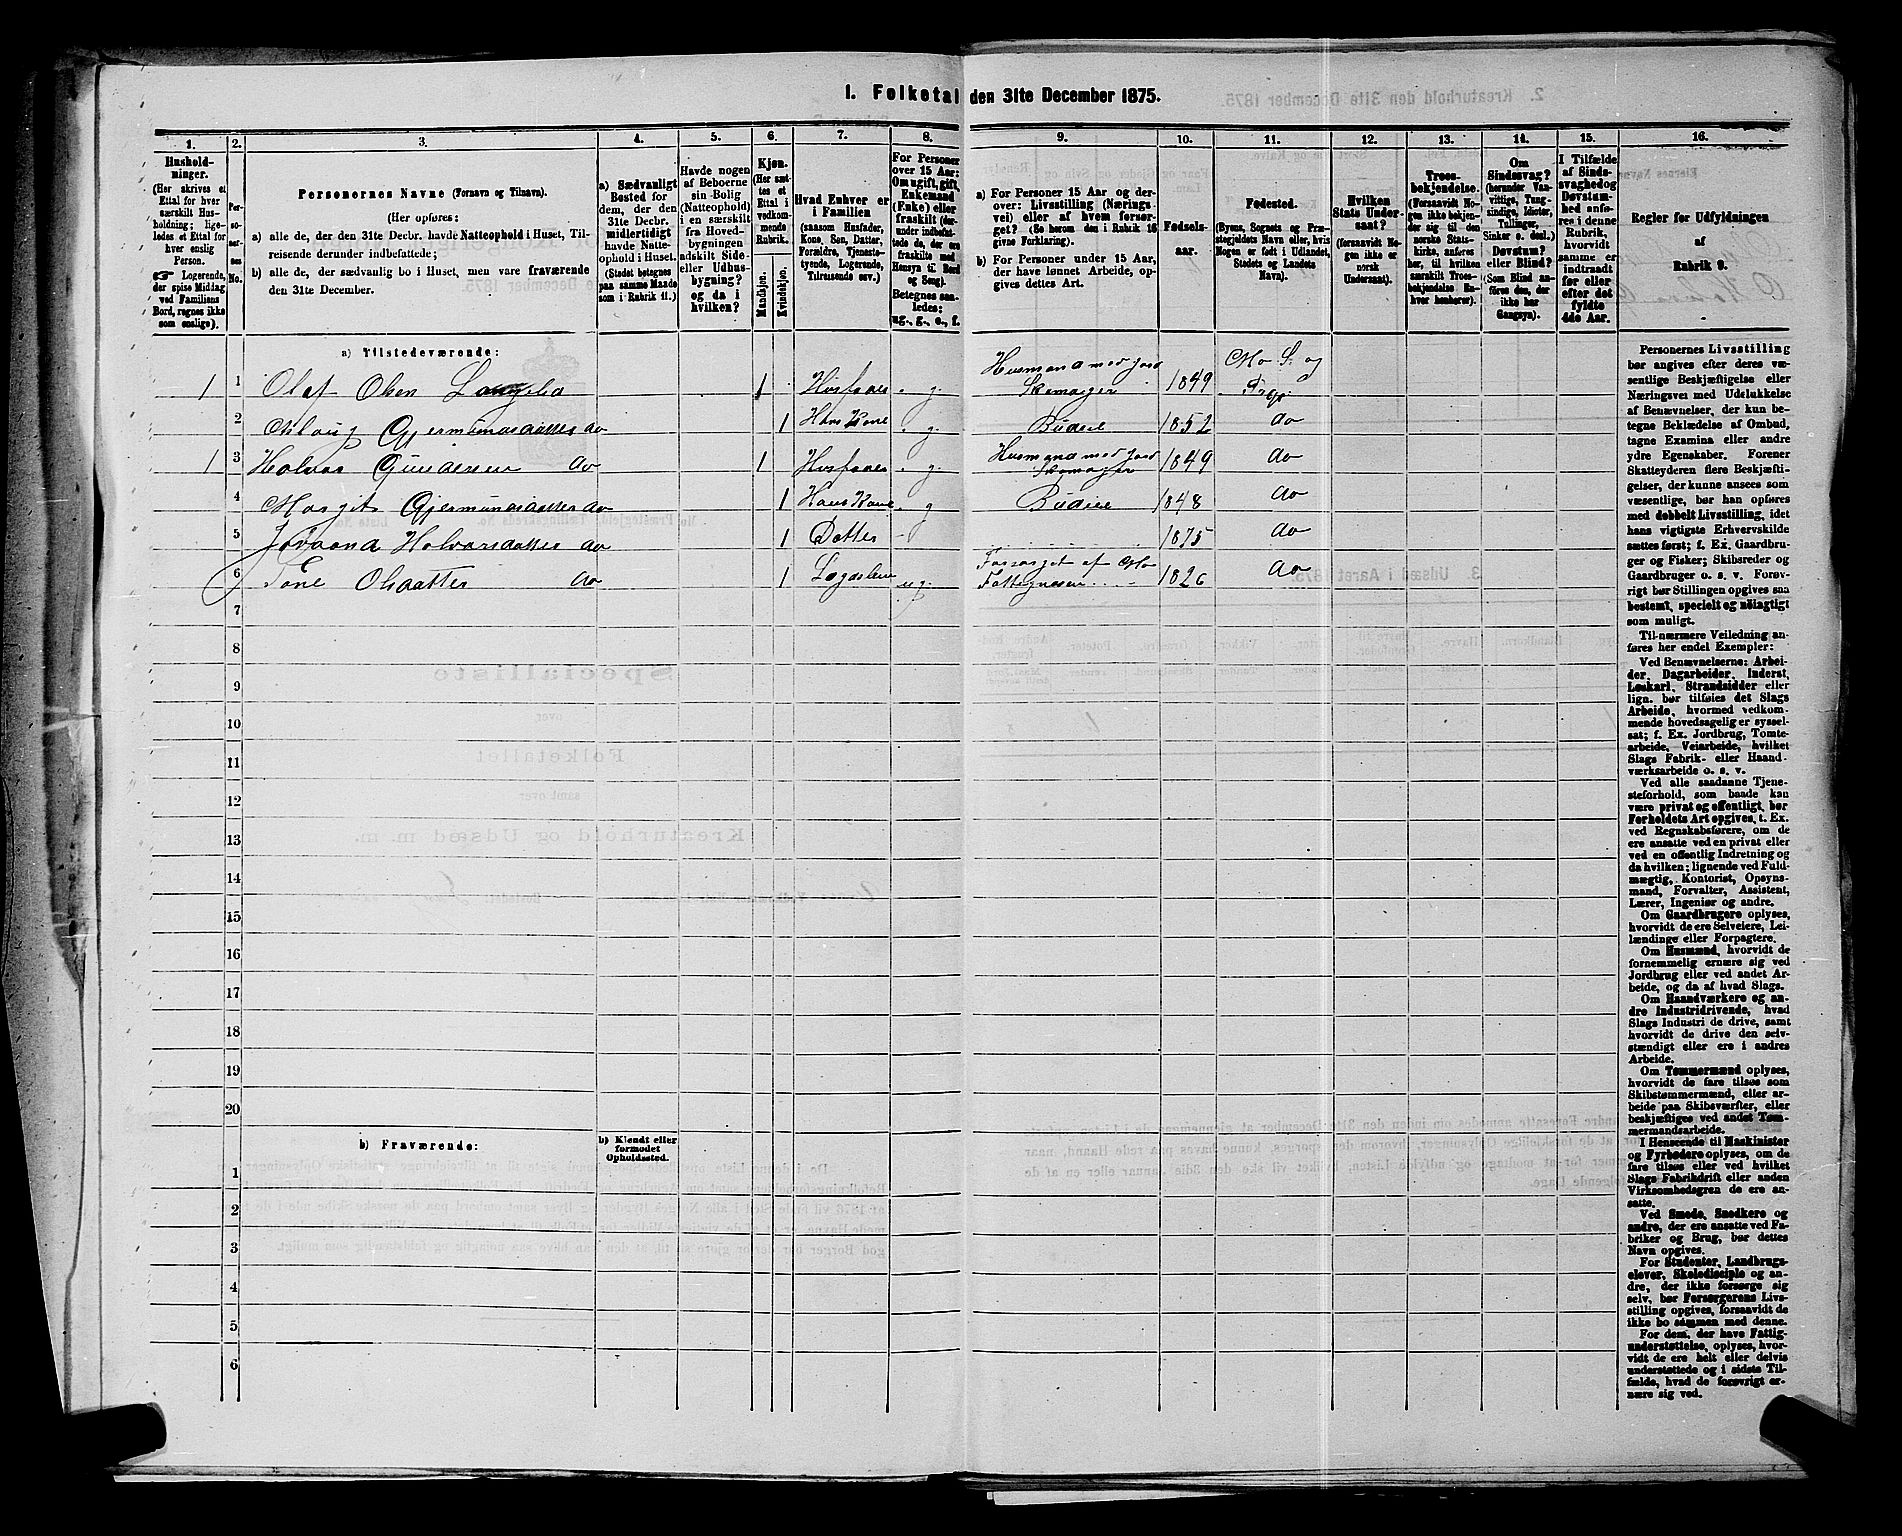 1. Folketal den 31te December 1875.
1. 2. 3. 4. 5. 6. 7. 8. 9. 10. 11. 12. 13. 14. 15. 16.
Hushold-
ninger.
(Her skrives et
Ettal for hver
særskilt Hus-
holdning; lige-
ledes et Ettal for
hver enslig
Person.
☛ Logerende,
der spise Middag
ved Familiens
Bord, regnes ikke
som enslige).
Per-
so-
ner-
nes
No.
Personernes Navne (Fornavn og Tilnavn).
(Her opføres:
a) alle de, der den 31te Decbr. havde Natteophold i Huset, Til-
reisende derunder indbefattede;
b) alle de, der sædvanlig bo i Huset, men vare fraværende
den 31te December.
a) Sædvanligt
Bosted for
dem, der den
31te Decbr.
midlertidigt
havde Natte-
ophold i Huset.
(Stedet betegnes
paa samme Maade
som i Rubrik 11.)
Havde nogen
af Beboerne
sin Bolig
(Natteophold)
i en særskilt
fra Hoved-
bygningen
adskilt Side-
eller Udhus-
bygning?
og da i
hvilken?
Kjøn.
(Her sæt-
tes et
Ettal i
vedkom-
mende
Rubrik.
Mandkjøn.
Kvindekjøn.
Hvad Enhver er
i Familien
(saasom Husfader,
Kone, Søn, Datter,
Forældre, Tjeneste-
tyende, Logerende,
Tilreisende osv.)
For Personer
over 15 Aar:
Om ugift, gift,
Enkemand
(Enke) eller
fraskilt (der-
under indbefat-
tede de, der ere
fraskilte med
Hensyn til Bord
og Seng).
Betegnes saa-
ledes:
ug., g., e., f.
a) For Personer 15 Aar og der-
over: Livsstilling (Nærings-
vei) eller af hvem forsør-
get? (Se herom den i Rubrik 16
givne Forklaring).
b) For Personer under 15 Aar,
der have lønnet Arbeide, op-
gives dettes Art.
Fødsels-
aar.
Fødested.
(Byens, Sognets og Præ-
stegjeldets Navn eller, hvis
Nogen er født i Udlandet,
Stedets og Landets
Navn).
Hvilken
Stats Under-
saat?
(forsaavidt No-
gen ikke er
norsk
Undersaat).
Troes-
bekjendelse.
(Forsaavidt No-
gen ikke bekjen-
der sig til den
norske Stats-
kirke, anføres
her, til hvilken
særskilt Troes-
bekjendelse En-
hver henhører).
Om
Sindssvag?
(herunder Van-
vittige, Tung-
sindige, Idioter,
Tullinger,
Sinker o. desl.)
Døvstum?
eller Blind?
(Som Blind an-
føres den, der
ikke har
Gangsyn).
I Tilfælde
af Sinds-
svaghed og
Døvstum-
hed anfø-
res i denne
Rubrik,
hvorvidt
samme er
indtraadt
før eller
efter det
fyldte
4de Aar.
Regler for Udfyldningen
af
Rubrik 9.
a) Tilstedeværende:
1 1 Olaf Olsen Langelid 1 Husfader g. Husmand med Jord Skomager 1849 Mo S. og Prgj.
2 Aslaug Gjermundsdatter do 1 Hans Kone g. Budeie 1852 do
1 3 Halvor Gundersen do 1 Husfader g. Husmand med Jord Skomager 1849 do
4 Margit Gjermundsdatter do 1 Hans Kone g Budeie 1848 do
5 Halvorsdatter do 1 Datter 1875 do
6 Tone Olsdatter do 1 Lægdslem ug. Forsørget af Mo Fattigvæsen 1826 do
7
8
9
10
11
12
13
14
15
16
17
18
19
20
b) Fraværende:
b) Kjendt eller
formodet
Opholdssted.
1
2
3
4
5
6
Personernes Livsstilling
bør angives efter deres væ-
sentlige Beskjæftigelse eller
Næringsvei med Udelukkelse
af Benævnelser, der kun be-
tegne Beklædelse af Ombud,
tagne Examina eller andre
ydre Egenskaber. Forener
Skatteyderen flere Beskjæfti-
gelser, der kunne ansees som
væsentlige, bør han opføres
med dobbelt Livsstilling, idet
hans vigtigste Erhvervskilde
sættes først; f. Ex. Gaardbru-
ger og Fisker; Skibsreder og
Gaardbruger o. s. v. Forøv-
rigt bør Stillingen opgives saa
bestemt, specielt og nøiagtigt
som muligt.
Til nærmere Veiledning an-
føres her endel Exempler:
Ved Benævnelserne: Arbei-
der, Dagarbeider, Inderst,
Løskarl, Strandsidder eller
lign. bør tilføies det Slags
Arbeide, hvormed vedkom-
mende hovedsagelig er syssel-
sat; f. Ex. Jordbrug, Tomte-
arbeide, Veiarbeide, hvilket
Slags Fabrik- eller Haand-
værksarbeide o. s. v.
Ved alle saadanne Tjene-
steforhold, som baade kan
være privat og offentligt, bør
Forholdets Art opgives, t. Ex.
ved Regnskabsførere, om de
ere ansatte ved en privat eller
ved en offentlig Indretning og
da hvilken; lignende ved Fuld-
mægtig, Kontorist, Opsyns-
mand, Forvalter, Assistent,
Lærer, Ingeniør og andre.
Om Gaardbrugere oplyses,
hvorvidt de ere Selveiere, Lei-
lændinge eller Forpagtere.
Om Husmænd, hvorvidt de
fornemmelig ernære sig ved
Jordbrug eller ved andet Ar-
beide, og da af hvad Slags.
Om Haandværkere og an-
dre Industridrivende, hvad
Slags Industri de drive, samt
hvorvidt de drive den selv-
stændigt eller ere i andres
Arbeide.
Om Tømmermænd oplyses,
hvorvidt de fare tilsøs som
Skibstømmermænd, eller ar-
beide paa Skibsværfter, eller
beskjæftiges ved andet Tøm-
mermandsarbeide.
I Henseende til Maskinister
og Fyrbødere oplyses, om de
fare tilsøs eller ved hvilket
Slags Fabrikdrift eller anden
Virksomhedsgren de ere an-
satte.
Ved Smede, Snedkere og
andre, der ere ansatte ved Fa-
briker og Brug, bør dettes
Navn opgives.
For Studenter, Landbrugs-
elever, Skoledisciple og an-
dre, der ikke forsørge sig
selv, bør Forsørgerens Livs-
stilling opgives, forsaavidt de
ikke bo sammen med denne.
For dem, der have Fattig-
understøttelse, oplyses, hvor-
vidt de ere helt eller delvis
understøttede og i sidste Til-
fælde, hvad de forøvrigt er-
nære sig ved.